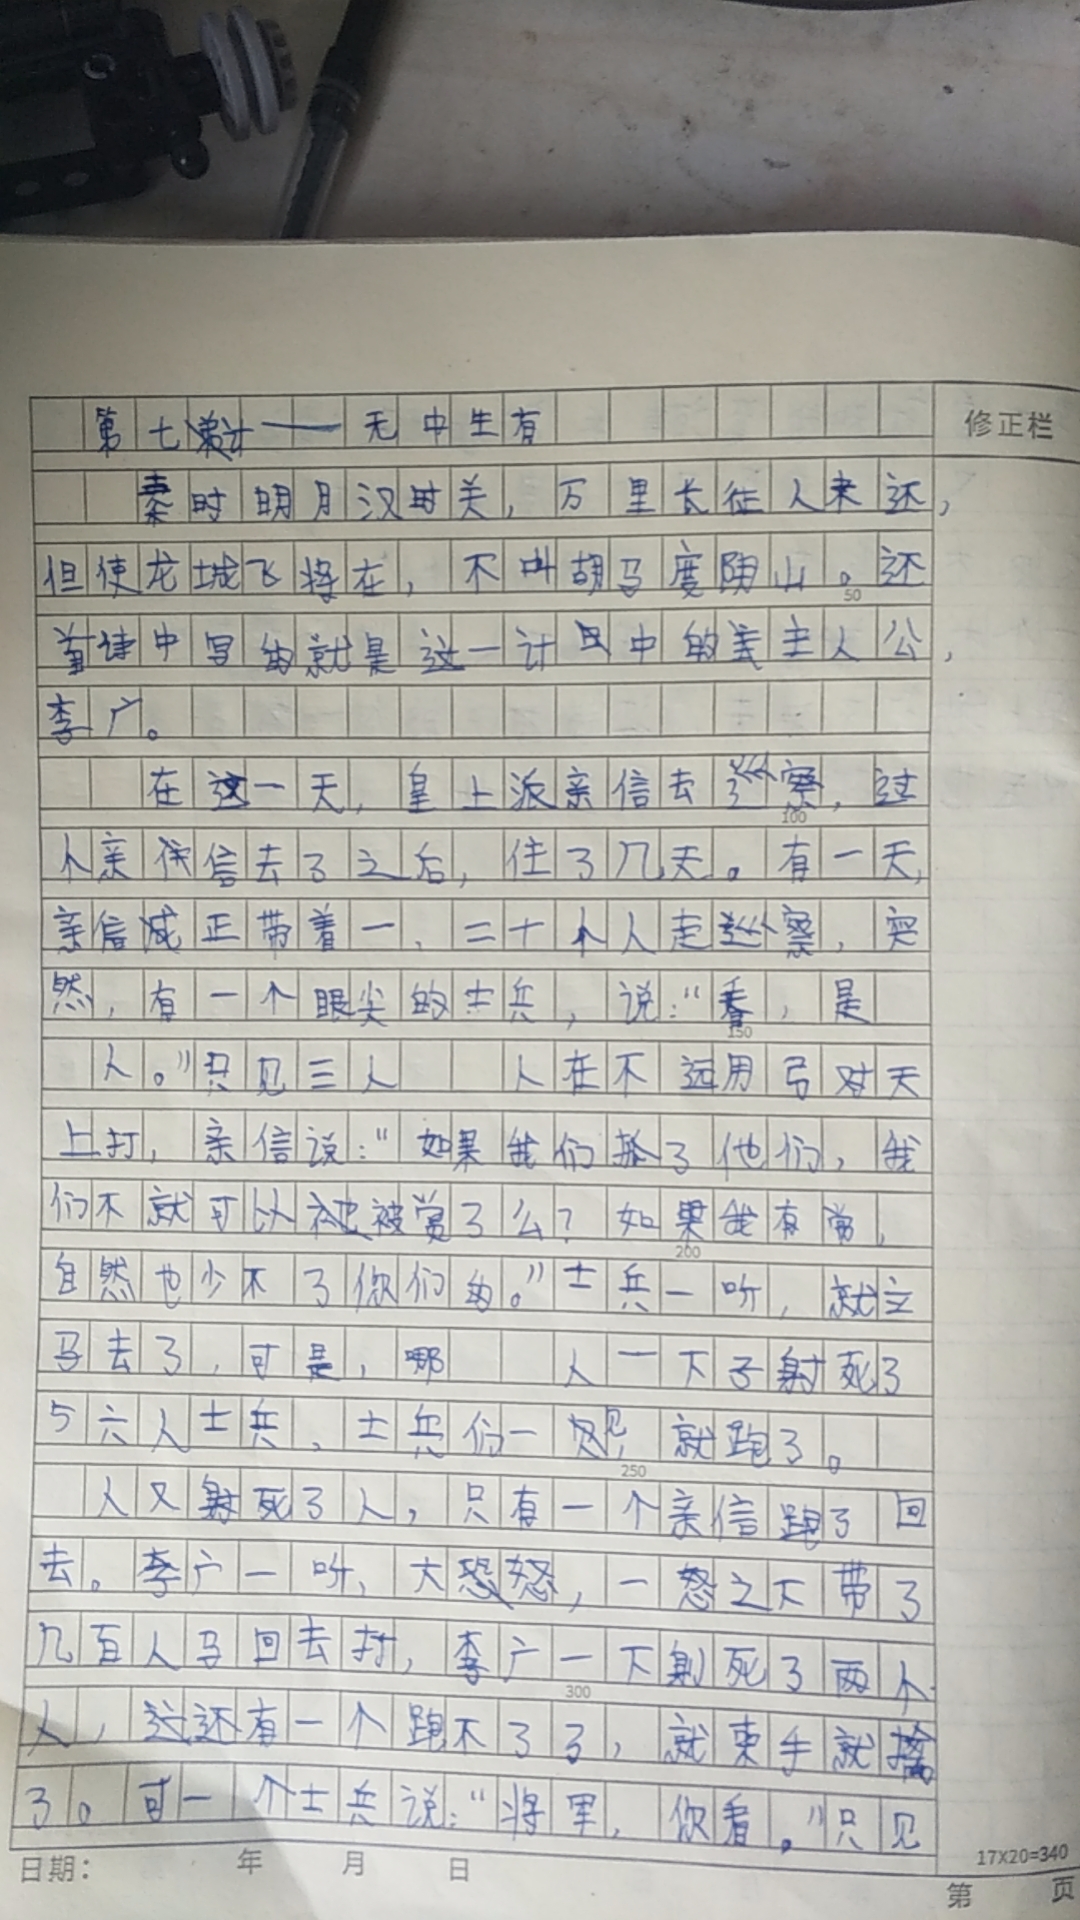 第七计——无中生有
修正栏
秦时明月汉时关，万里长征人未还，
但使龙城飞将在，不叫胡马度阴山。还
首诗中写的就是这一计中的主人公，
李广。
在这一天，皇上派亲信去巡察，过
个亲信去了之后，住了几天。有一天，
亲信正带着一、二十个人走巡察，突
然，有一个眼尖的士兵，说：“看，是
人。”只见三人 人在不远用弓对天
上打，亲信说：“如果我们抓了他们，我
们不就可以被赏了么？如果我有赏，
自然也少不了你们的。”士兵一听，就立
马去了，可是，哪 人一下子射死了
5六人士兵，士兵们一见，就跑了。
人又射死了人，只有一个亲信跑了回
去。李广一听，大怒，一怒之下带了
几百人马回去打，李广一下射死了两个
人，还有一个跑不了了，就束手就擒
了。可一个士兵说：“将军，你看。”只见
50
100
150
200
250
300
17X20=340
日期： 年 月 日
第 页